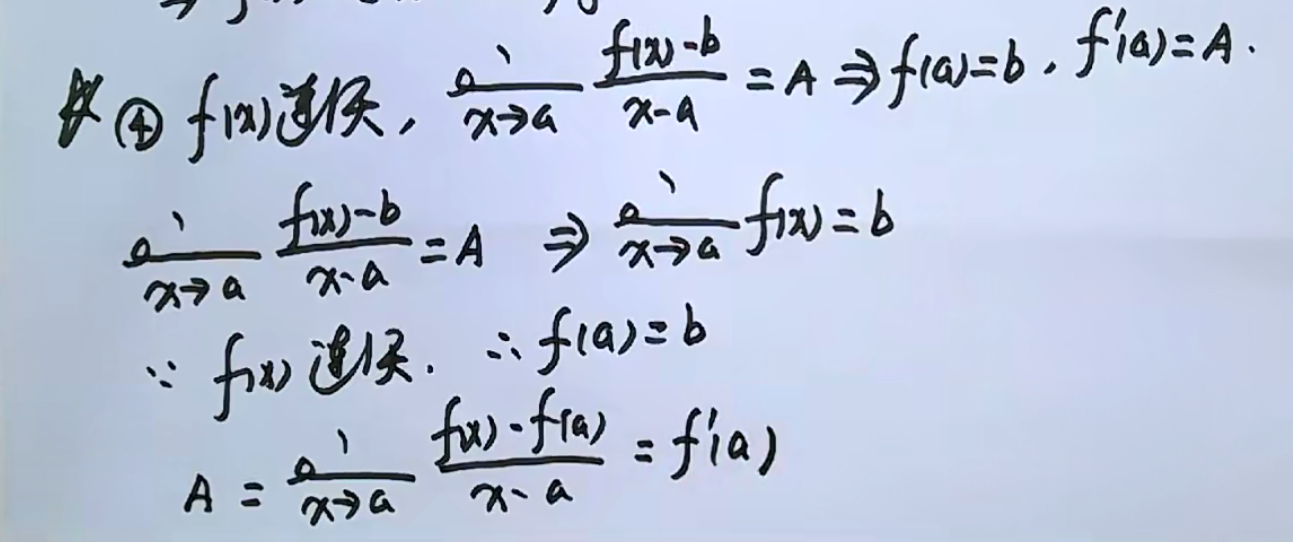 ④ f(x)连续, lim x→a (f(x)-b)/(x-a) = A ⇒ f(a)=b, f'(a)=A.
lim x→a (f(x)-b)/(x-a) = A ⇒ lim x→a f(x) = b
∵ f(x)连续. ∴ f(a)=b
A = lim x→a (f(x)-f(a))/(x-a) = f'(a)